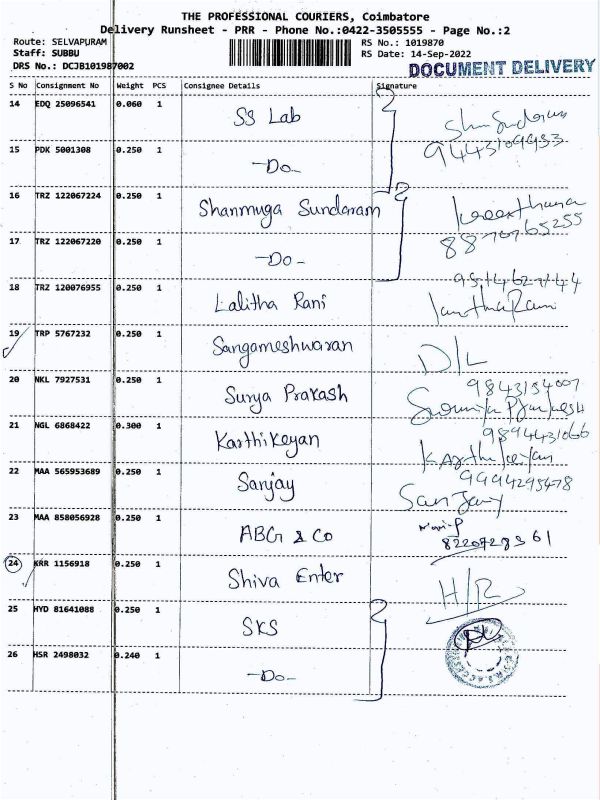 THE PROFESSIONAL COURIERS, Coimbatore
Delivery Runsheet - PRR - Phone No.:0422-3505555 - Page No.:2
Route: SELVAPURAM RS No.: 1019870
Staff: SUBBU RS Date: 14-Sep-2022
DRS No.: DCJB101987002 DOCUMENT DELIVERY
S No Consignment No Weight PCS Consignee Details Signature
14 EDQ 25096541 0.060 1 SS Lab
9443109953
15 PDK 5001308 0.250 1 -Do-
16 TRZ 122067224 0.250 1 Shanmuga Sundaram
17 TRZ 122067220 0.250 1 -Do-
18 TRZ 120076955 0.250 1 Lalitha Rani
19 TRP 5767232 0.250 1 Sangameshwaran D/L
20 NKL 7927531 0.250 1 Surya Prakash
21 NGL 6868422 0.300 1 Karthikeyan
9894431066
22 MAA 565953689 0.250 1 Sanjay
9994295478
23 MAA 858056928 0.250 1 ABG & Co
24 KRR 1156918 0.250 1 Shiva Enter H/R
25 HYD 81641088 0.250 1 SKS
26 HSR 2498032 0.240 1 -Do-